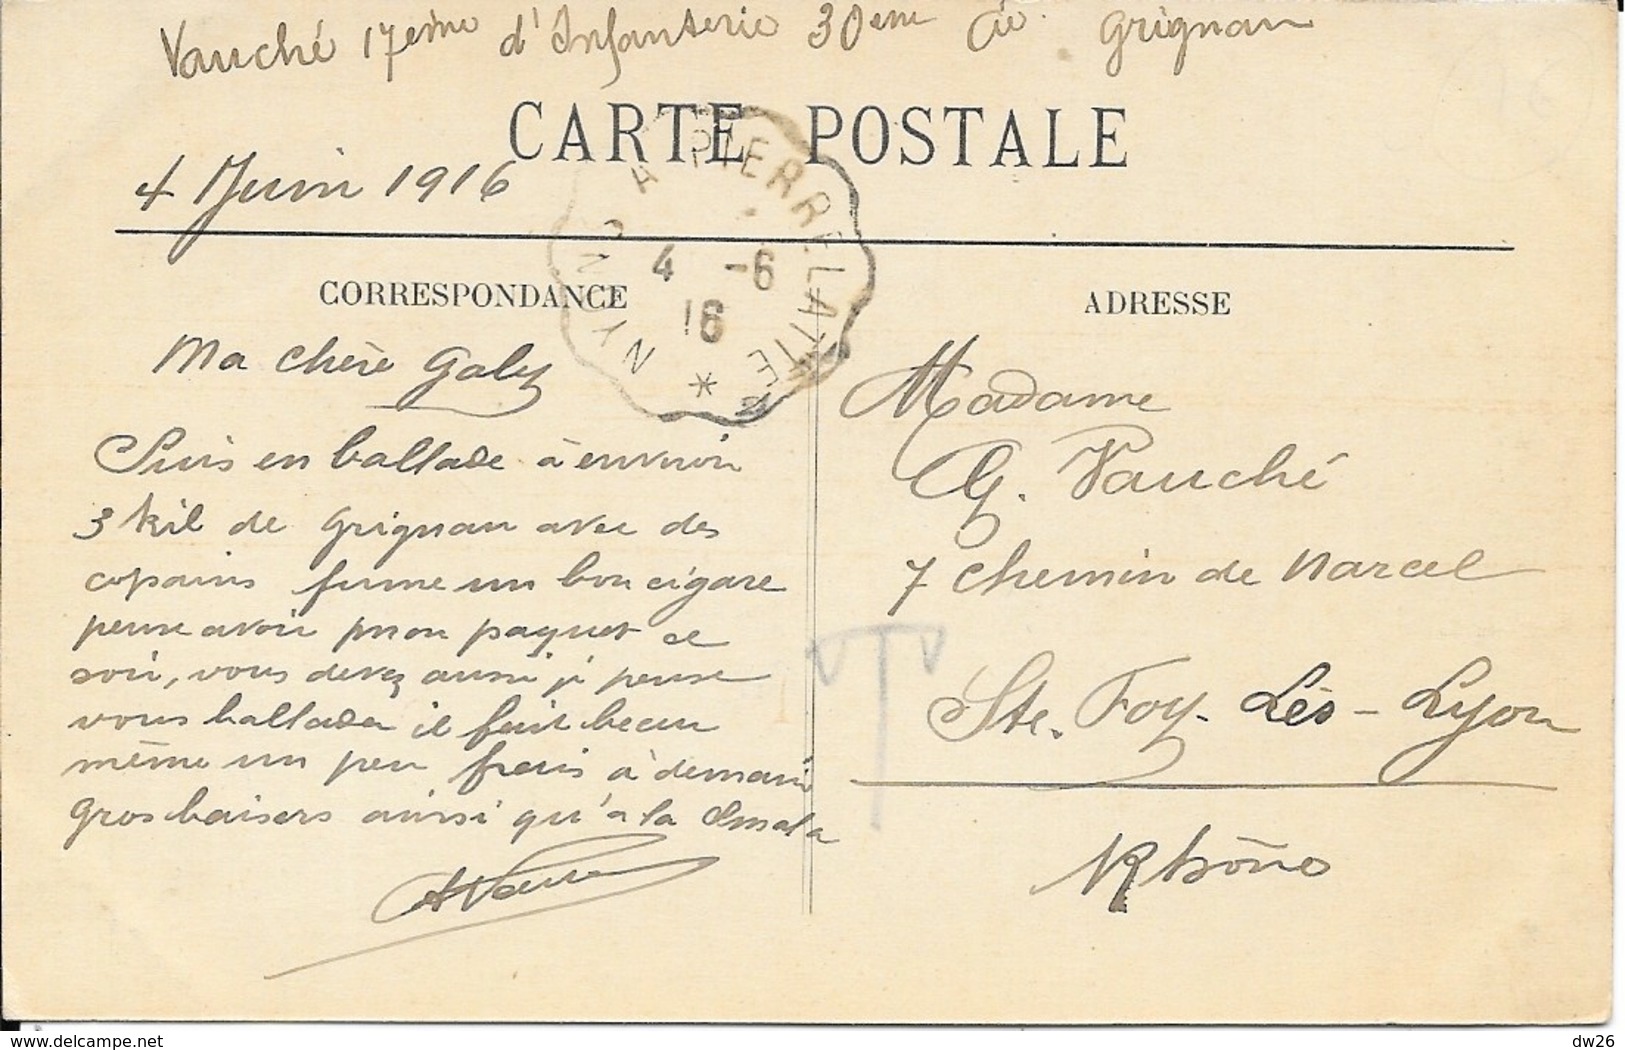 Vauché 17eme d'Infanterie 30eme Cie Grignan
CARTE POSTALE
4 Juin 1916
NYONS A PIERRELATTE
4 -6
16
CORRESPONDANCE
ADRESSE
Ma chère Gaby
Suis en ballade à environ
3 kil de Grignan avec des
copains fume un bon cigare
pense avoir mon paquet ce
soir, vous devez aussi je pense
vous ballader il fait beau
même un peu frais à demain
Gros baisers ainsi qu'à la Smala
Madame
G. Vauché
7 chemin de Narcel
Ste. Foy-Lès-Lyon
Rhône
T
dw26
delcampe.net